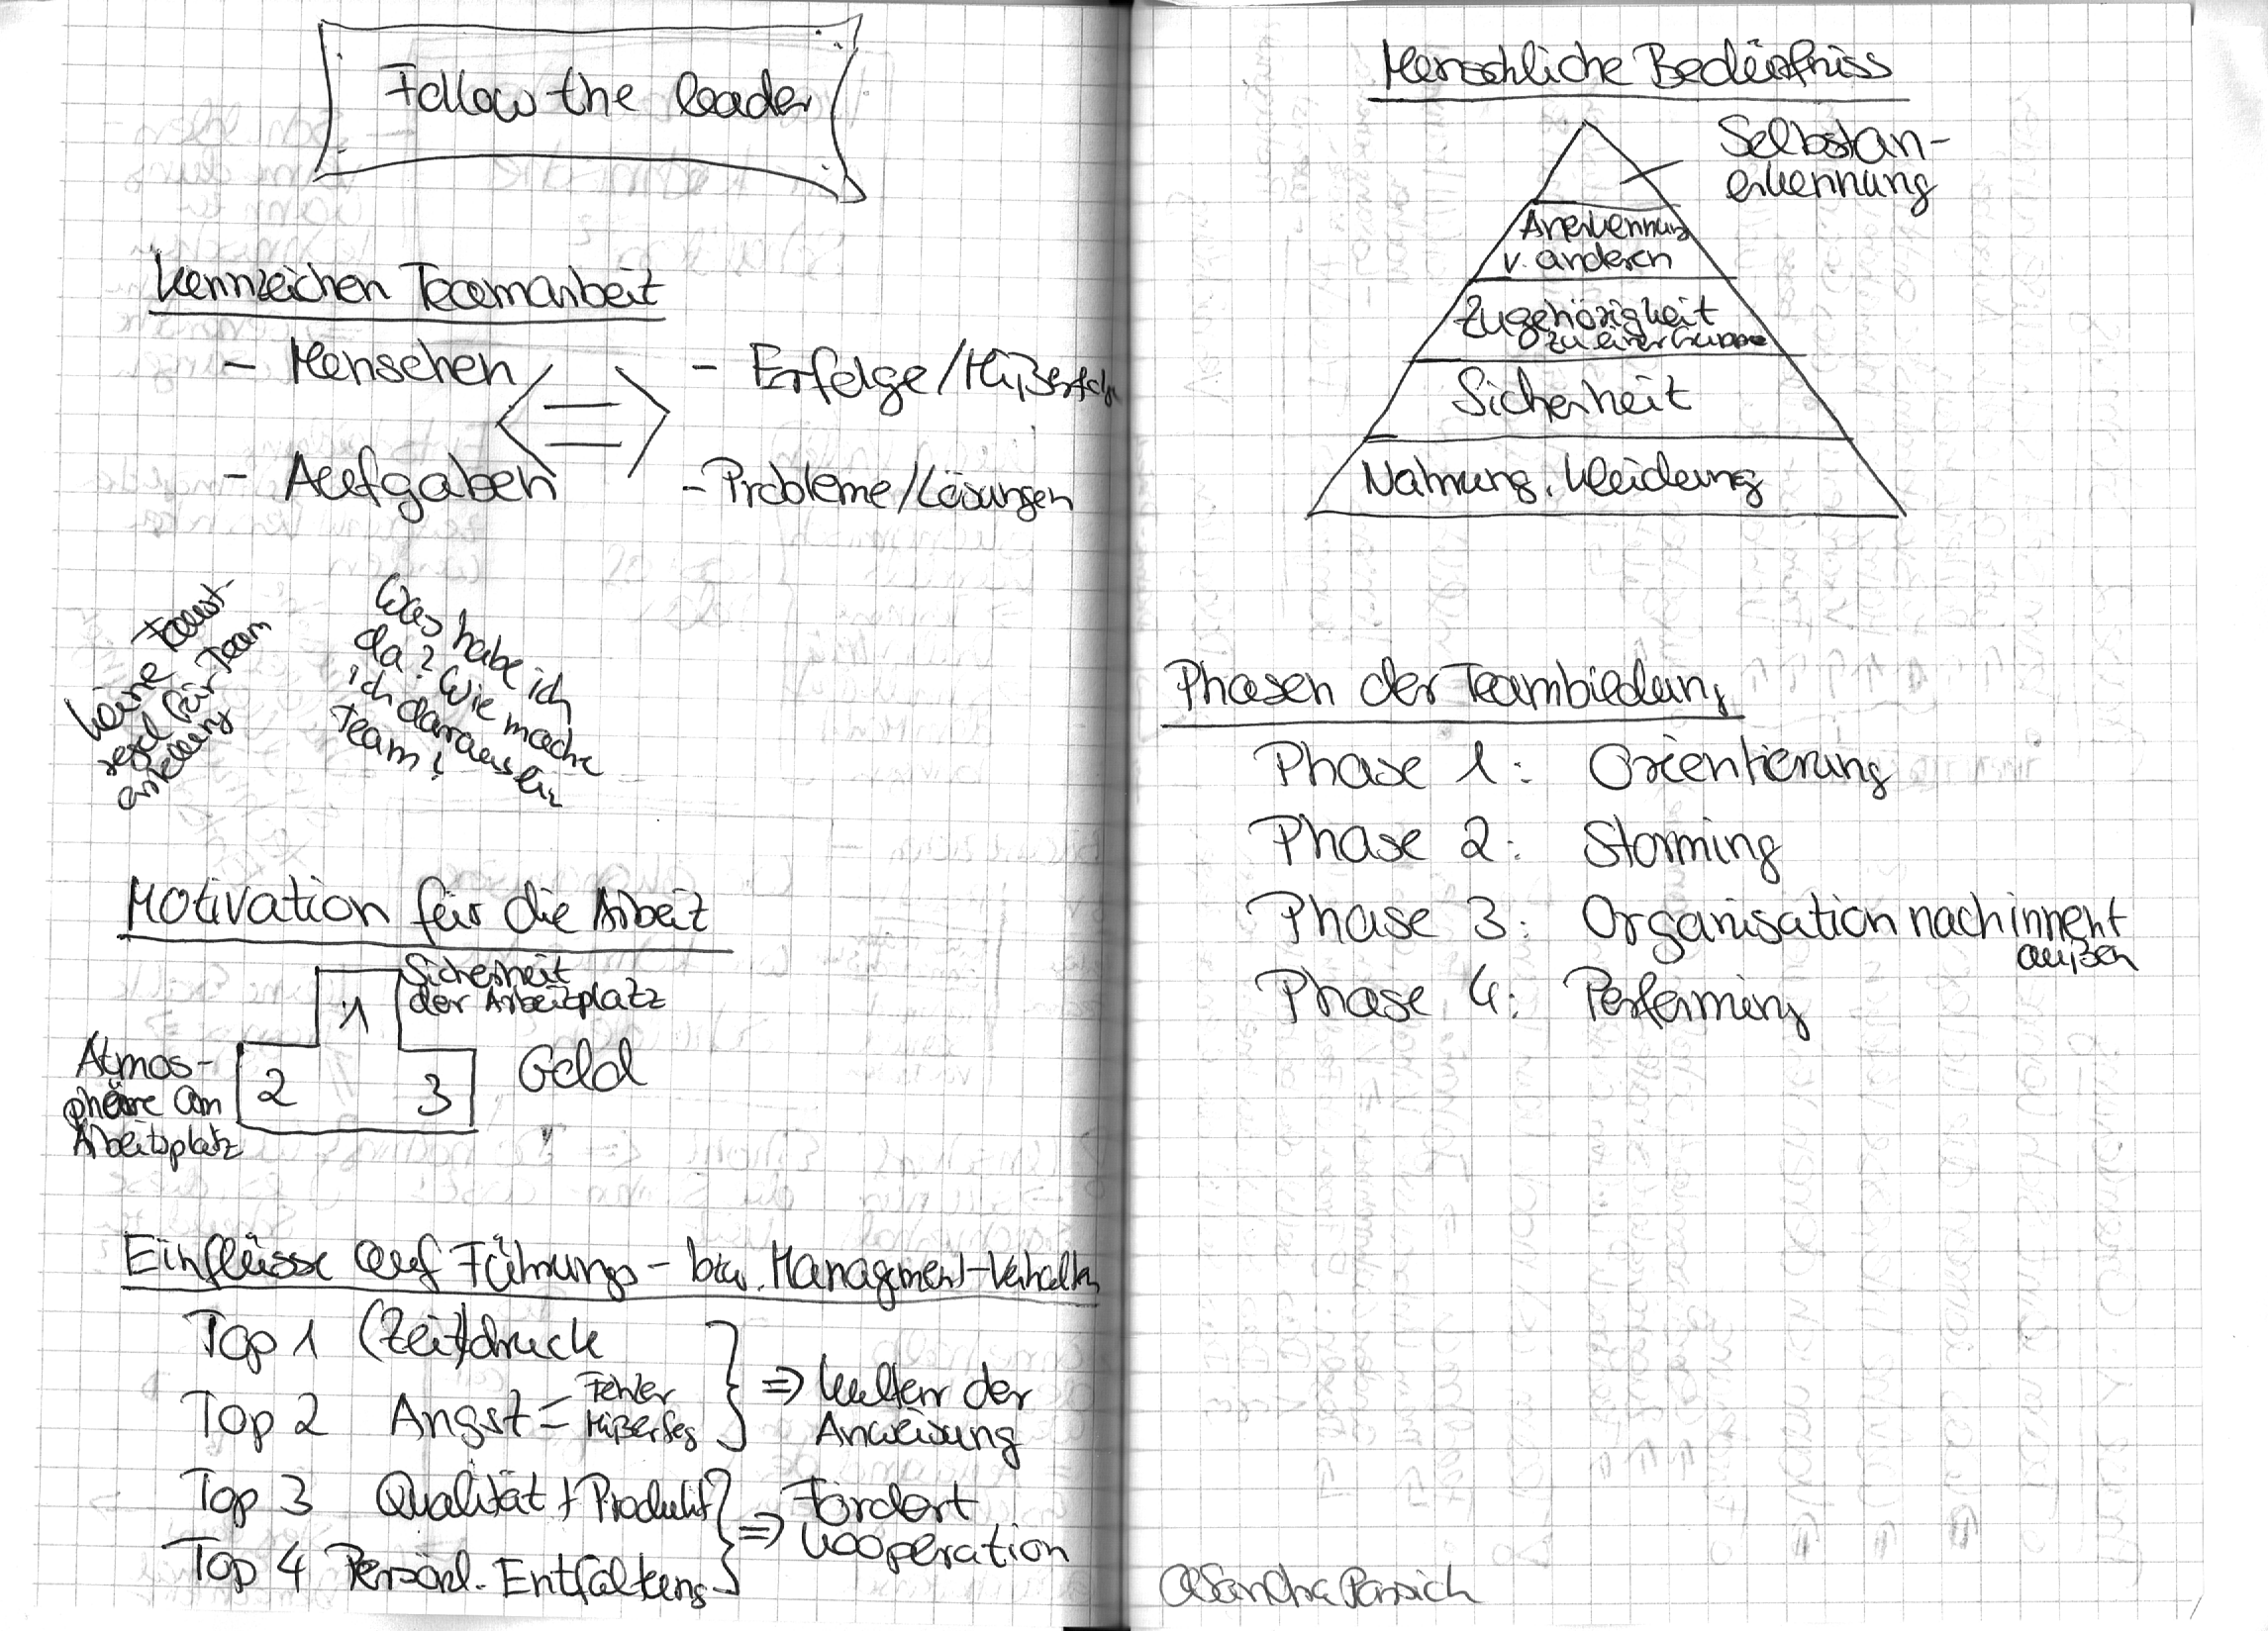 Follow the leader
Kennzeichen Teamarbeit
- Menschen
- Erfolge/Mißerfolge
- Aufgaben
- Probleme/Lösungen
keine Faust-
regel für Team
erstellung
Was habe ich
da? Wie mache
ich daraus ein
Team?
Motivation für die Arbeit
1
Sicherheit
der Arbeitplatz
Atmos-
phäre am
Arbeitsplatz
2
3
Geld
Einflüsse auf Führungs- bzw. Managment-Verhalten
Top 1 (Zeit)druck
Top 2 Angst = Fehler
Mißerfog
=> Kultur der
Anweisung
Top 3 Qualität + Produkt
Top 4 Persönl. Entfaltung
=> Fördert
Kooperation
Menschliche Bedürfniss
Selbstan-
erkennung
Anerkennung
v. anderen
Zugehörigkeit
zu einer Gruppe
Sicherheit
Nahrung, Kleidung
Phasen der Teambildung
Phase 1: Orientierung
Phase 2: Storming
Phase 3: Organisation nach innen+
außen
Phase 4: Performing